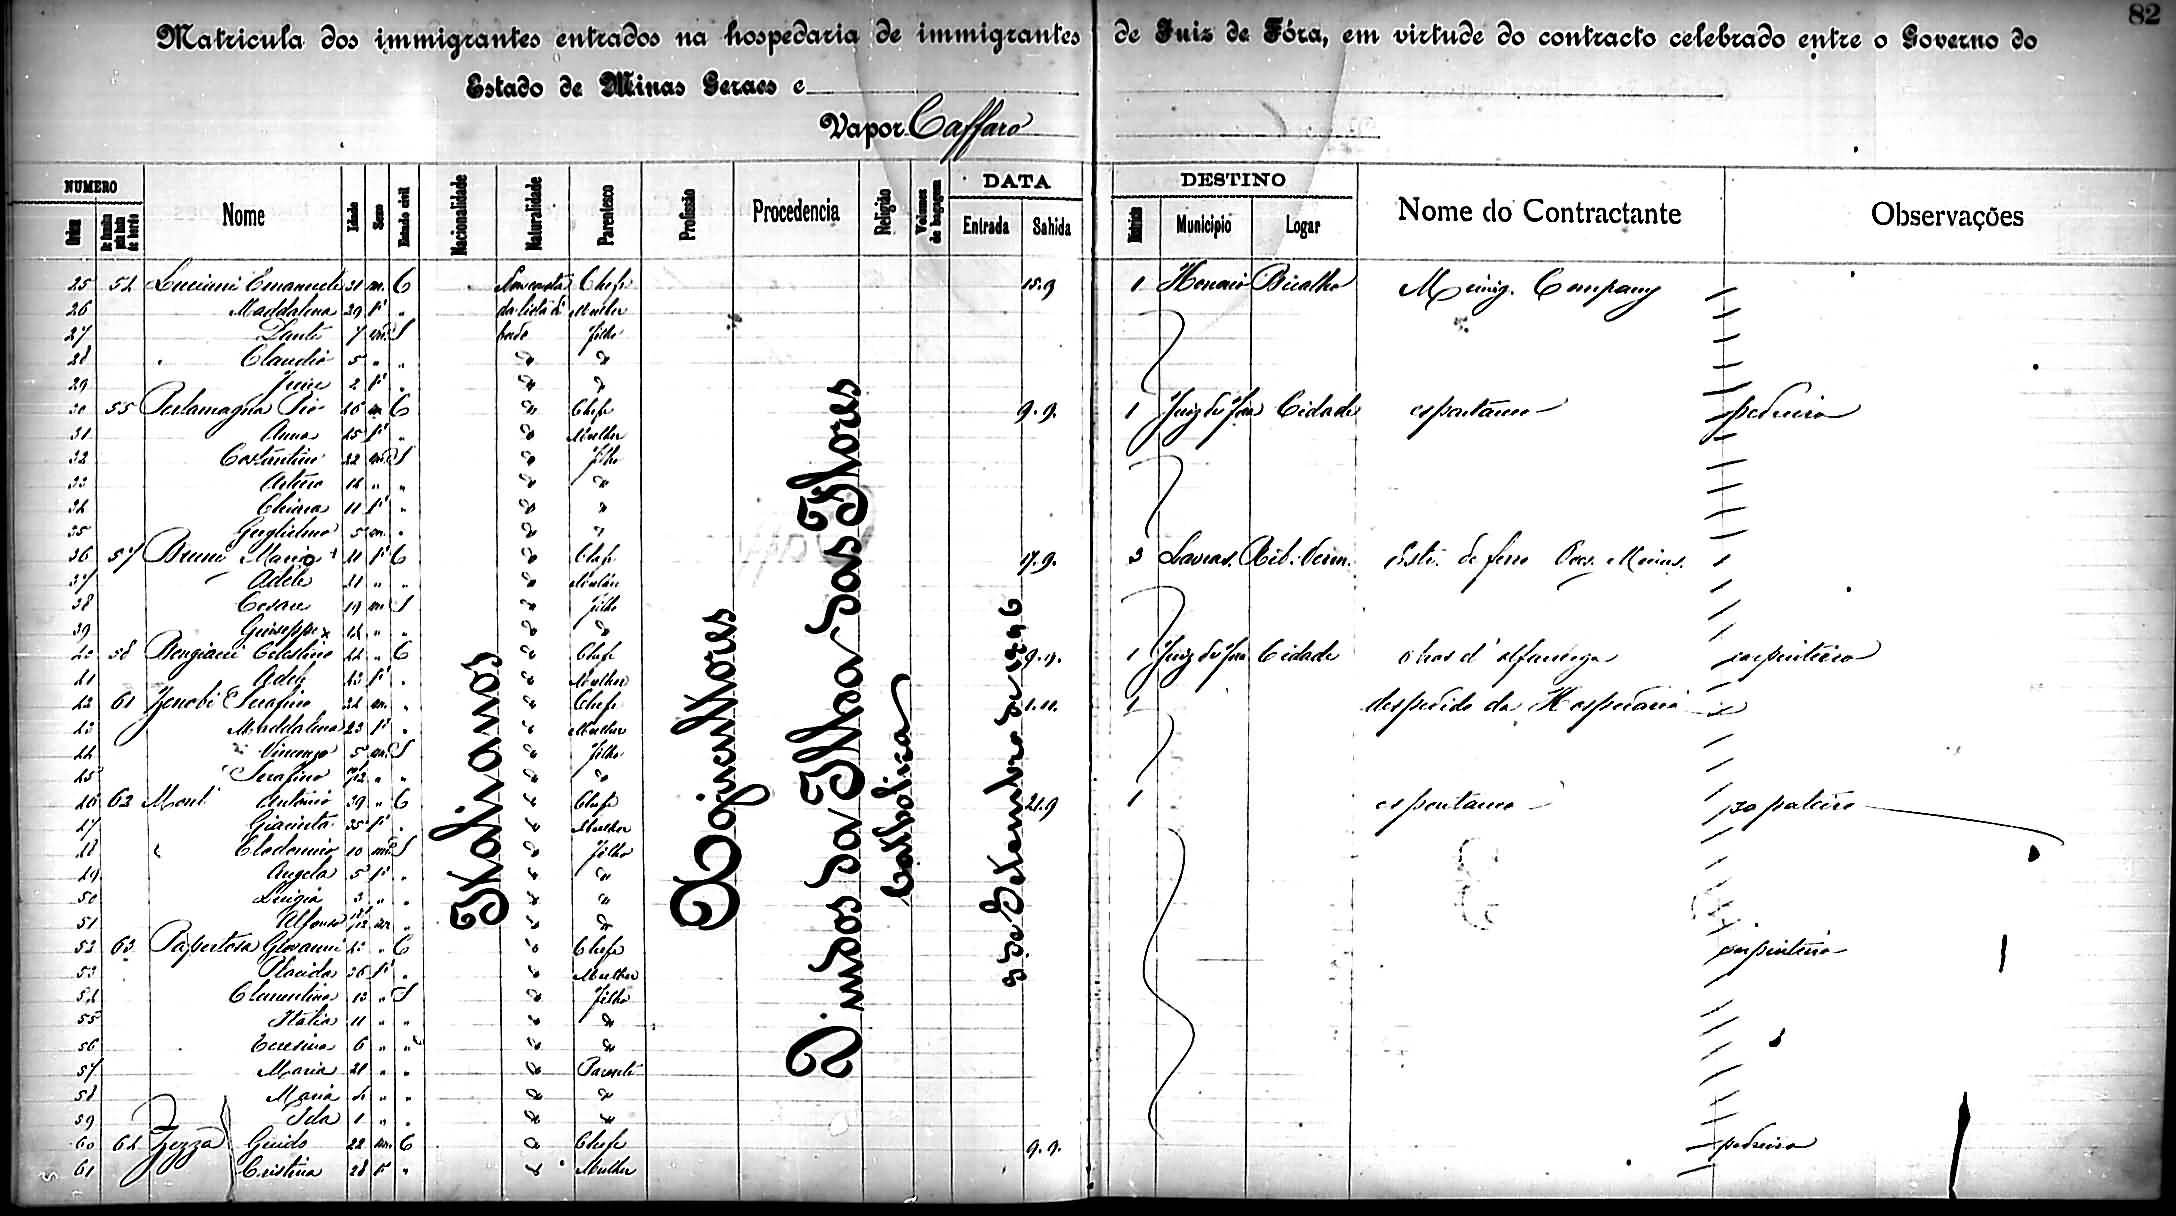 82
Matricula dos immigrantes entrados na hospedaria de immigrantes de Juiz de Fóra, em virtude do contracto celebrado entre o Governo do
Estado de Minas Geraes e
Vapor Caffaro
NUMERO DATA DESTINO
Ordem Nome Idade Sexo Estado civil Nacionalidade Naturalidade Parentesco Profissão Procedencia Religião Volumes de bagagem Entrada Sahida Districto Municipio Logar Nome do Contractante Observações
25 52 Luciani Emanuele 31 m. C Non consta Chefe 15.9 1 Honorio Bicalho Meinig. Company
26 Maddalena 29 f " da lista di Mulher
27 Dante 7 m. S bordo Filho
28 Claudio 5 " " " "
29 2 f " " "
30 55 Pio 46 m C " Chefe 9.9. 1 Juiz de Fora Cidade espontaneo pedreiro
31 Anna 45 f " " Mulher
32 Costantino 22 m S " Filho
33 Arturo 14 " " " "
34 Chiara 11 f " " "
35 Guglielmo 5 m. " " "
36 57 Bruni Mario 41 f C " Chefe 17.9. 3 Lavras. Rib. Verm. Estr. de ferro Oes. Minas.
37 Adele 41 " " " Mulher
38 Cesare 19 m S " Filho
39 Giuseppe 14 " " " "
40 58 Celestino 44 " C " Chefe 9.9. 1 Juiz de Fora Cidade carpinteiro
41 43 f " " Mulher
42 61 Zenobi Serafino 24 m. " " Chefe 1.11. 1 despedido da Hospedaria
43 Maddalena 23 f " " Mulher
44 Vincenzo 5 m S " Filho
45 Serafino " " " "
46 62 Monti Antonio 39 " C " Chefe 21.9 1 espontaneo sapateiro
47 Giacinta 35 f " " Mulher
48 Clodomiro 10 m S " Filho
49 Angela 5 f " " "
50 Luigia 3 " " " "
51 Alfonso m " " "
52 63 Giovanni 42 " C " Chefe carpinteiro
53 Placida 36 f " " Mulher
54 Clementina 13 " S " Filho
55 Italia 11 " " " "
56 Teresina 6 " " " "
57 Maria 28 " " " Parente
58 Maria 4 " " " "
59 Ida 1 " " " "
60 64 Zezza Guido 22 m. C " Chefe 9.9. pedreiro
61 Cristina 28 f " " Mulher
Italianos
Agicultores
Vindos da Ilha das Flores
Catholica
3 de Setembro de 1896